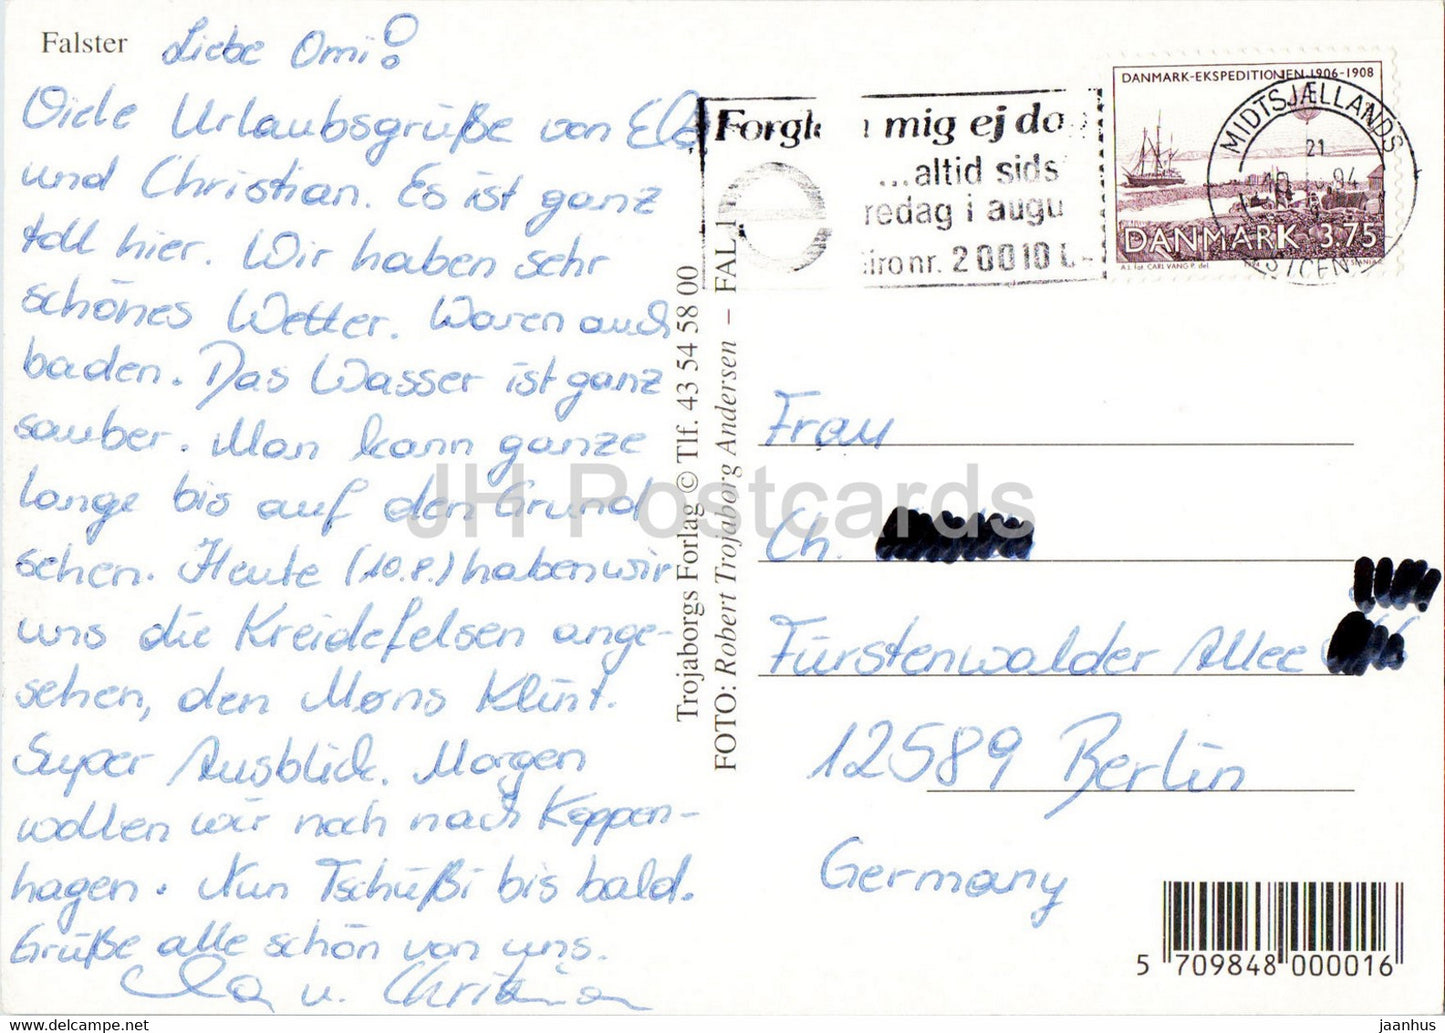 Falster
Liebe Omi!
Viele Urlaubsgrüße von Ela
und Christian. Es ist ganz
toll hier. Wir haben sehr
schönes Wetter. Waren auch
baden. Das Wasser ist ganz
sauber. Man kann ganze
lange bis auf den Grund
sehen. Heute (10.8.) haben wir
uns die Kreidefelsen ange-
sehen, den Møns Klint.
Super Ausblick. Morgen
wollen wir noch nach Koppen-
hagen. Nun Tschüßi bis bald.
Grüße alle schön von uns.
Ela u. Christian
Trojaborgs Forlag © Tlf. 43 54 58 00
FOTO: Robert Trojaborg Andersen – FAL 1
mig ej do
...altid sids
redag i augu
nr. 20010
DANMARK-EKSPEDITIONEN 1906-1908
DANMARK 3.75
CARL VANG P. del.
MIDTSJÆLLANDS
21
94
Frau
Ch.
Fürstenwalder Allee
12589 Berlin
Germany
5 709848 000016
JH Postcards
jaanhus — https://www.delcampe.net